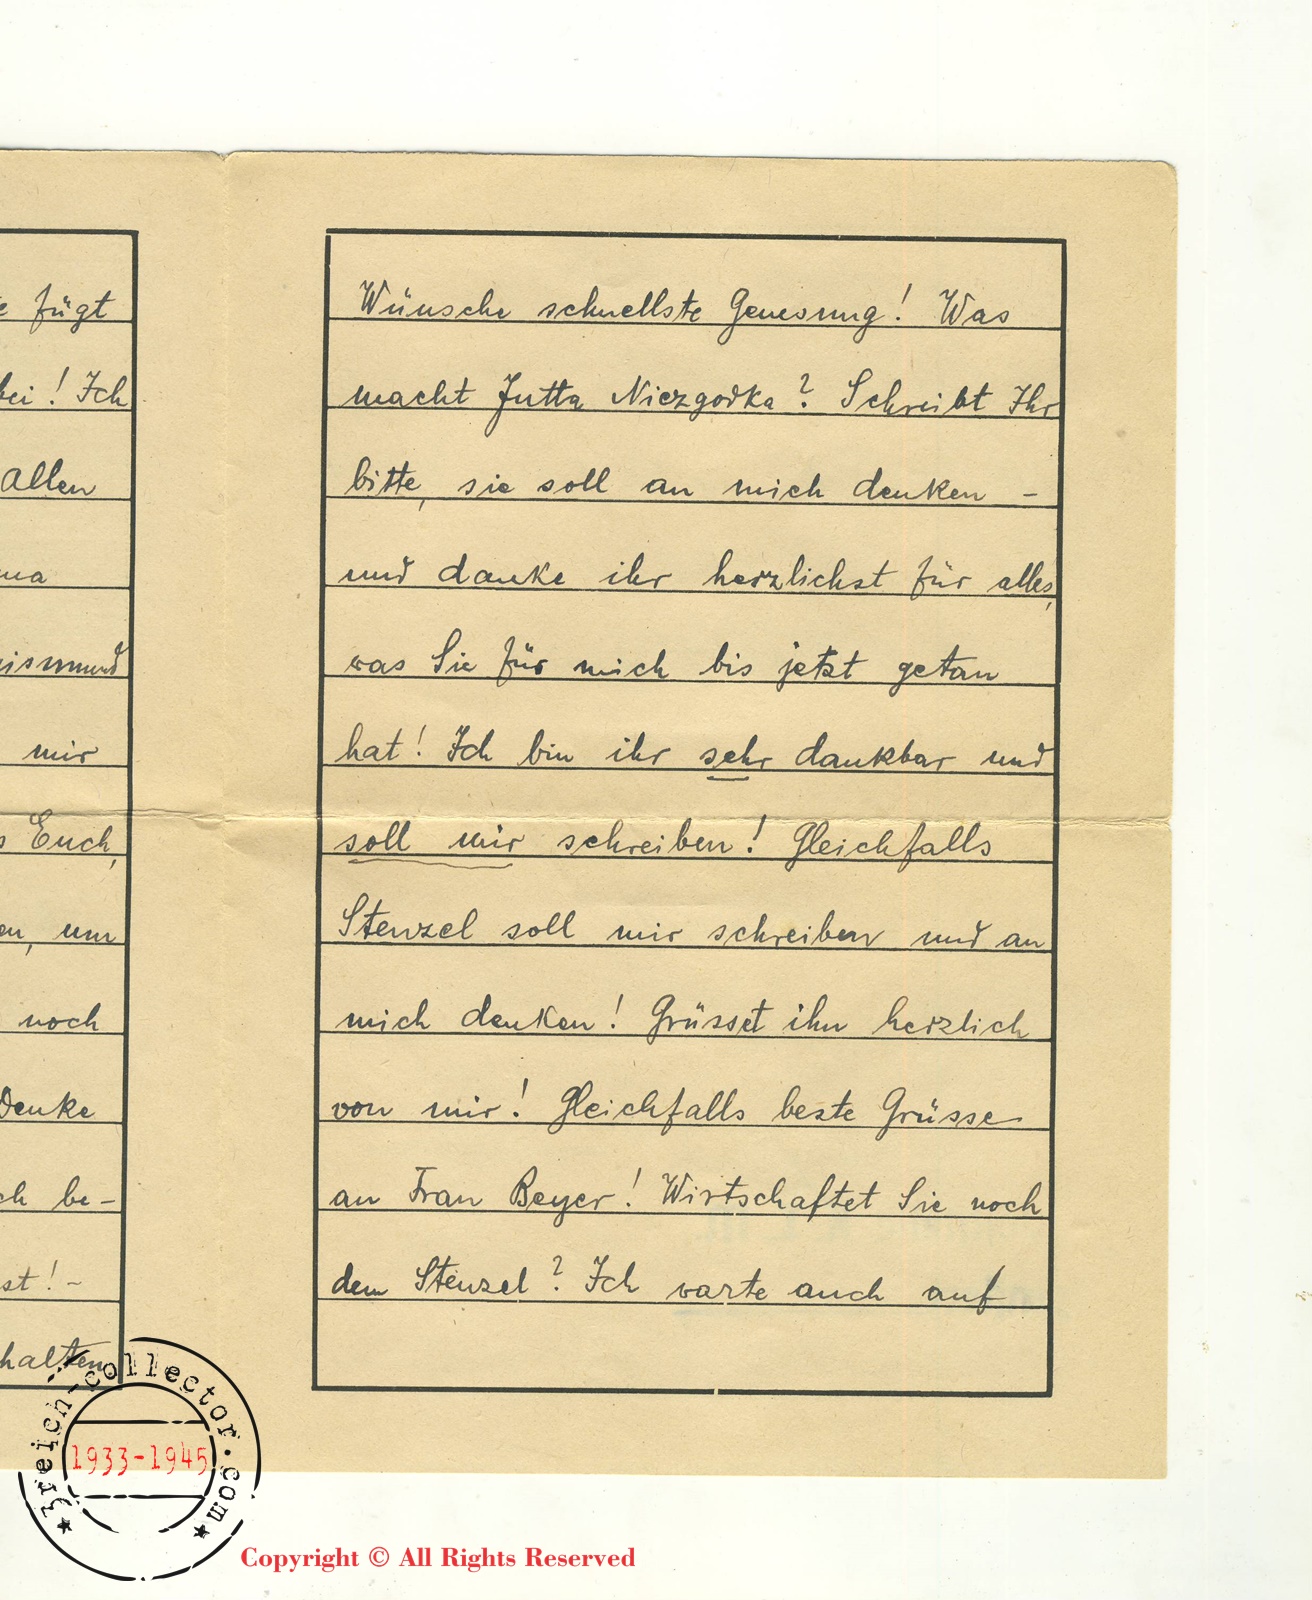 e fügt
bei! Ich
Allen
mir
Euch,
um
noch
Denke
be-
st! -
halten
Wünsche schnellste Genesung! Was
macht Jutta Niezgodka? Schreibt Ihr
bitte, sie soll an mich denken -
und danke ihr herzlichst für alles,
was Sie für mich bis jetzt getan
hat! Ich bin ihr sehr dankbar und
soll mir schreiben! Gleichfalls
Stenzel soll mir schreiben und an
mich denken! Grüsset ihn herzlich
von mir! Gleichfalls beste Grüsse
an Frau Beyer! Wirtschaftet Sie noch
dem Stenzel? Ich warte auch auf
3reich-collector.com
1933-1945
Copyright © All Rights Reserved